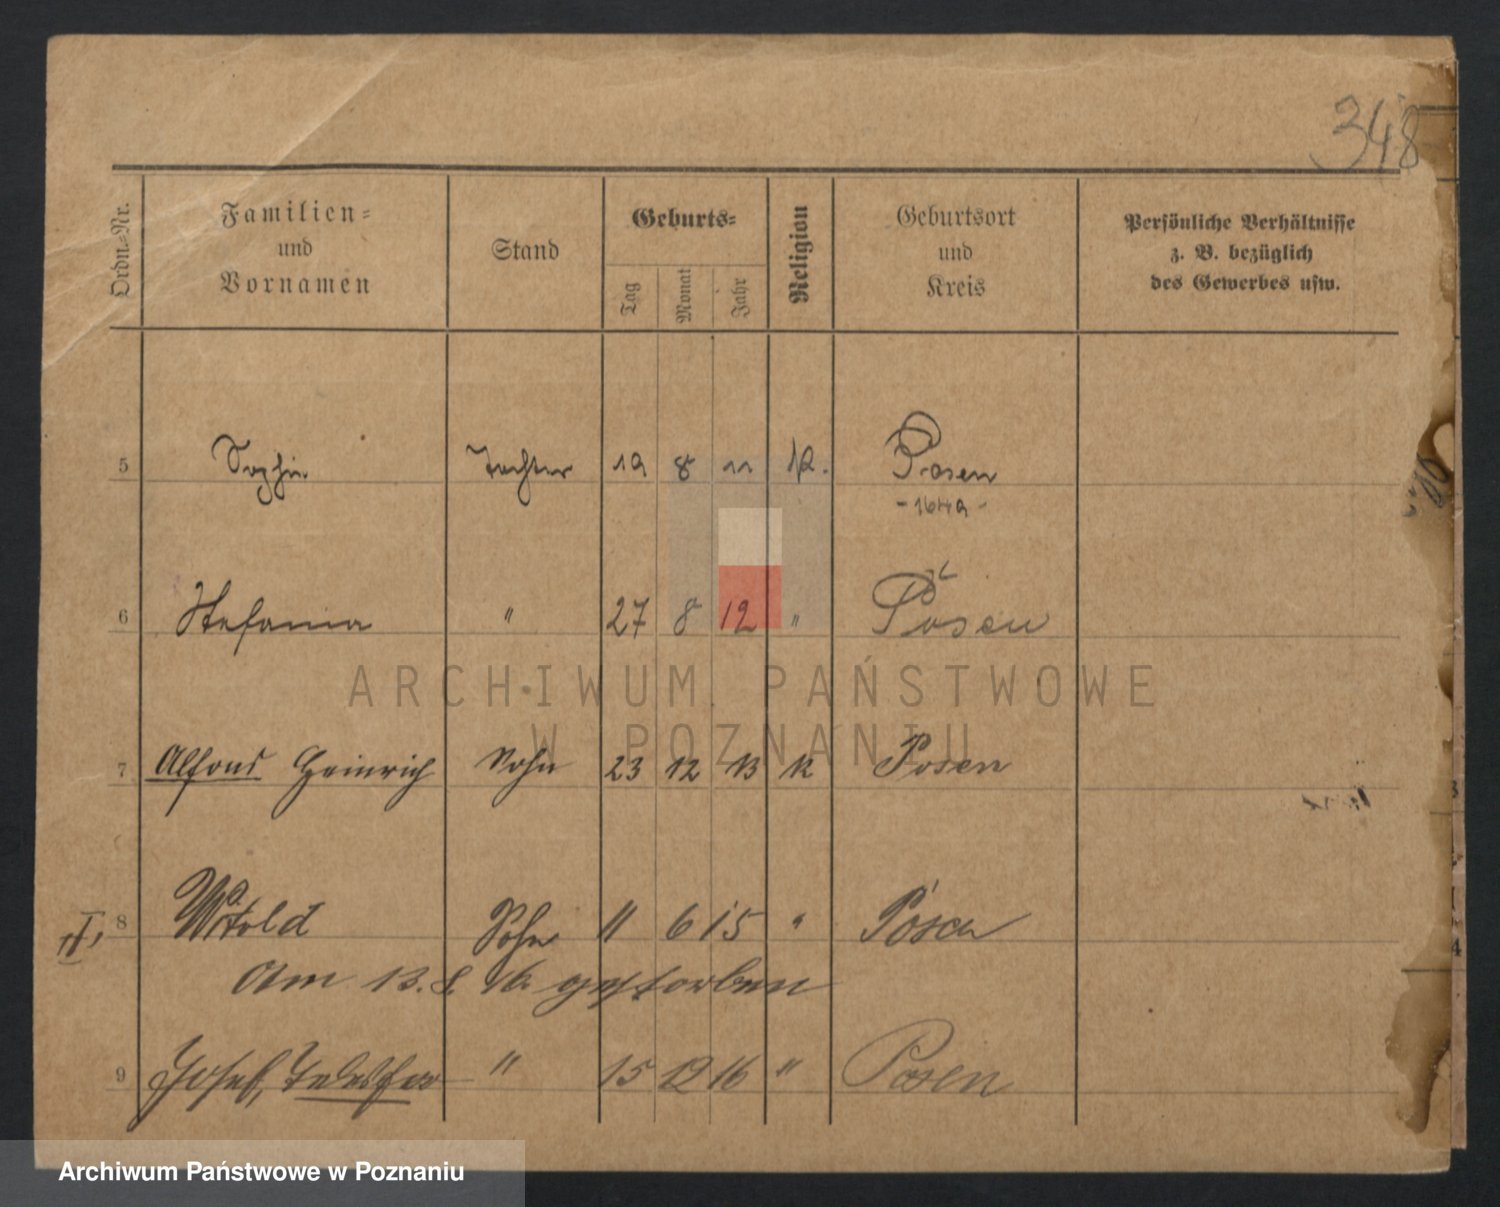 348
Ordn.-Nr.
Familien-
und
Vornamen
Stand
Geburts-
Tag
Monat
Jahr
Religion
Geburtsort
und
Kreis
Persönliche Verhältnisse
z. B. bezüglich
des Gewerbes usw.
5 Sophie Tochter 19 8 11 k. Posen
6 Stefania " 27 8 12 " Posen
ARCHIWUM PAŃSTWOWE
W POZNANIU
7 Alfons Heinrich Sohn 23 12 13 k Posen
8 Witold Sohn 11 6 15 " Posen
Am 13. 8. 16 gestorben
9 Josef, " 15 12 16 " Posen
Archiwum Państwowe w Poznaniu